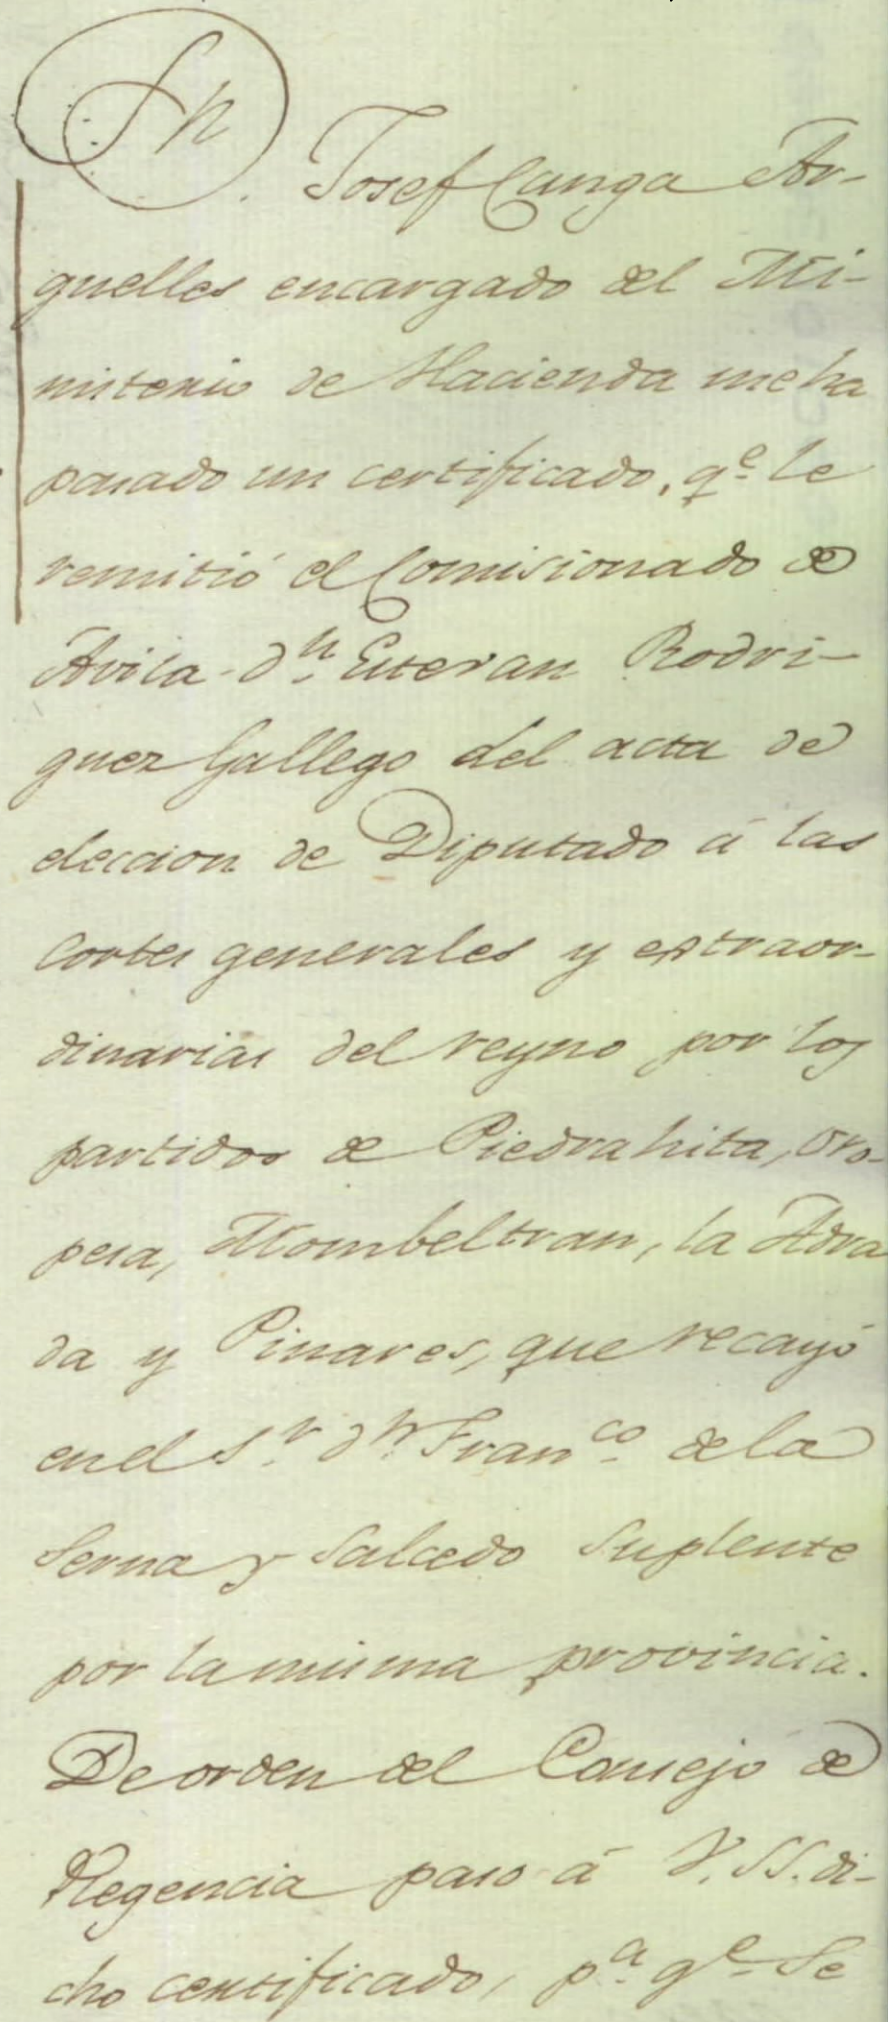 Dn. Josef Canga Ar-
guelles encargado del Mi-
nisterio de Hacienda me ha
pasado un certificado, qe. le
remitió el Comisionado de
Avila dn. Estevan Rodri-
guez Gallego del acta de
eleccion de Diputado á las
Cortes generales y extraor-
dinarias del reyno por los
partidos de Piedrahita, Oro-
pesa, Mombeltran, la Adra
da y Pinares, que recayó
en el Sr. dn. Franco. de la
Serna y Salcedo Suplente
por la misma provincia.
De orden del Consejo de
Regencia paso á V.SS. di-
cho certificado, pa. qe. se